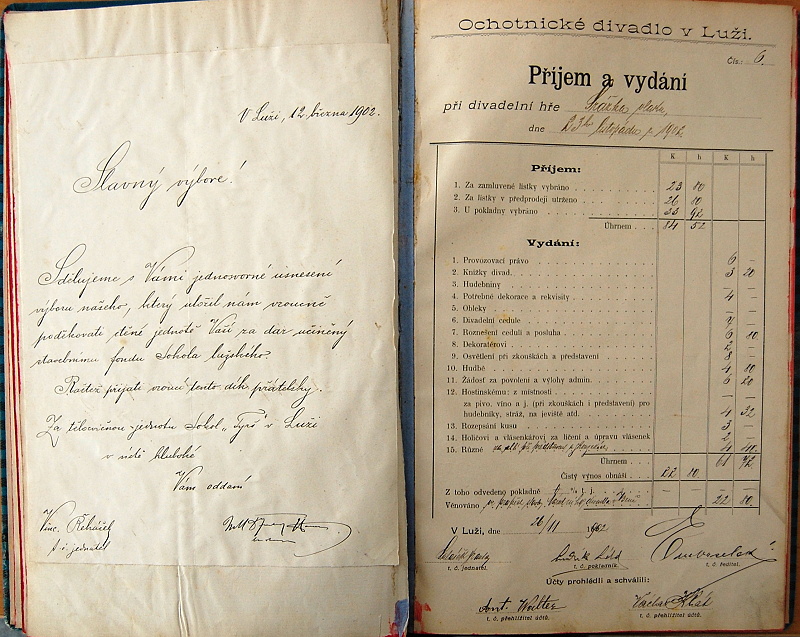 V Luži, 12 března 1902.
Slavný výbore!
Sdělujeme s Vámi jednosvorné usnesení
výboru našeho, který uložil nám vroucně
poděkovati ctěné jednotě Vaší za dar učiněný
stavebnímu fondu Sokola lužského.
Račtež přijati vroucí tento dík přátelsky.
Za tělocvičnou jednotu Sokol „Tyrš" v Luži
v úctě hluboké
Vám oddaní
Vinc. Řehácěl
t. č. jednatel
Ochotnické divadlo v Luži.
Čís.: 6.
Příjem a vydání
při divadelní hře Srážka
dne 23ho listopadu r 1902
K h K h
Příjem:
1. Za zamluvené lístky vybráno 23 80
2. Za lístky v předprodeji utrženo 26 80
3. U pokladny vybráno 33 92
Úhrnem 84 52
Vydání:
1. Provozovací právo 6 —
2. Knížky divad. 3 20
3. Hudebniny — —
4. Potřebné dekorace a rekvisity 4 —
5. Obleky — —
6. Divadelní cedule 7 —
7. Roznešení cedulí a posluha 6 80
8. Dekoratérovi 2 —
9. Osvětlení při zkouškách a představení 8 —
10. Hudbě 4 80
11. Žádosť za povolení a výlohy admin. 6 20
12. Hostinskému: z místnosti — —
za pivo, víno a j. (při zkouškách i představení) pro
hudebníky, stráž, na jeviště atd. 4 32
13. Rozepsání kusu 3 —
14. Holičovi a vlásenkárovi za líčení a úpravu vlásenek 2 —
15. Různé 4 40
Úhrnem 61 72
Čistý výnos obnáší 22 80
Z toho odvedeno pokladně — — — —
Věnováno 22 80
V Luži, dne 26/11 1902
t. č. jednatel.
t. č. pokladník.
t. č. ředitel.
Účty prohlédli a schválili:
Ant. Walter
Václav
t. č. přehlížitel účtů.
t.č. přehlížitel účtů.